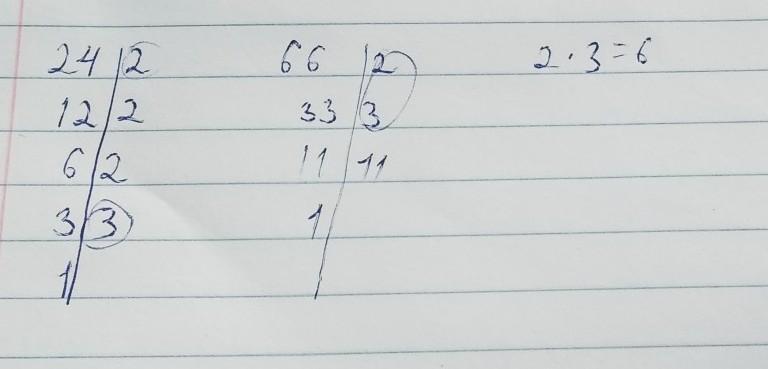 24 | 2 66 | 2 2 · 3 = 6
12 | 2 33 | 3
6 | 2 11 | 11
3 | 3 1 |
1 |